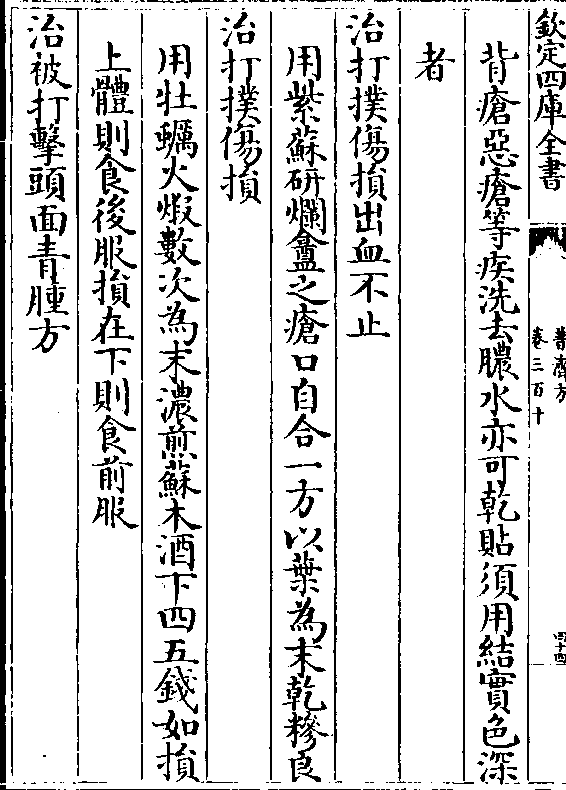 欽定四庫全書
普濟方
卷三百十
四十四
背瘡惡瘡等疾洗去膿水亦可乾貼須用結實色深
者
治打撲傷損出血不止
用紫蘇研爛盦之瘡口自合一方以葉為末乾糝良
治打撲傷損
用牡蠣火煆數次為末濃煎蘇木酒下四五錢如損
上體則食後服損在下則食前服
治被打擊頭面青腫方